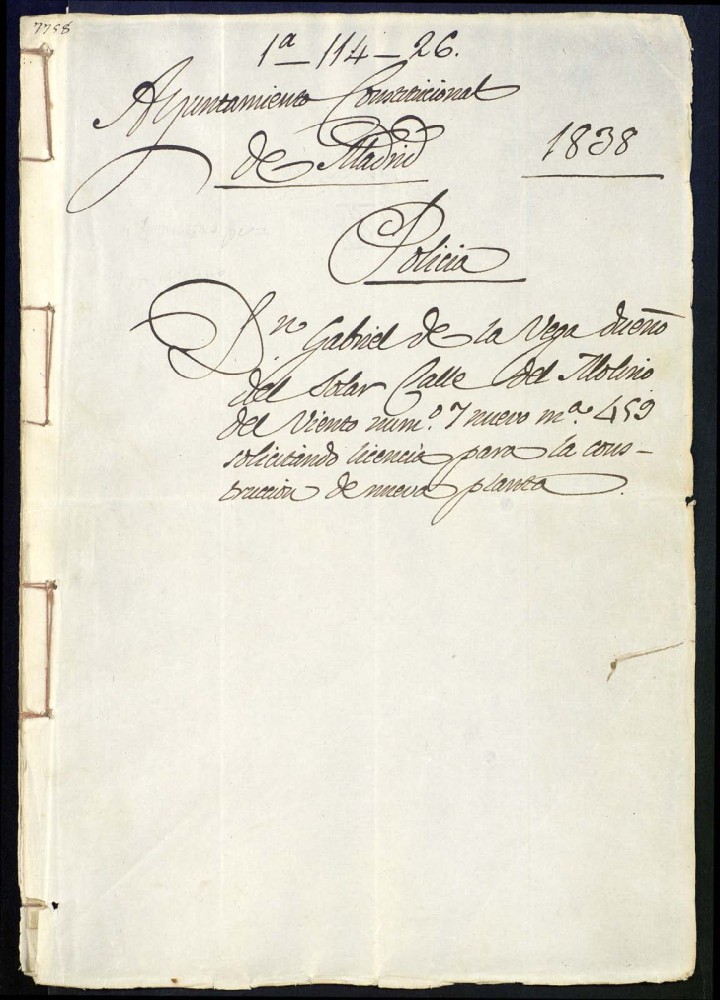 7758
1ª - 114 - 26.
Ayuntamiento Constitucional
de Madrid 1838
Policia
D.n Gabriel de la Vega dueño
del solar Calle del Molino
del Viento num.º 7 nuevo m.ª 459
solicitando licencia para la cons-
truccion de nueva planta.